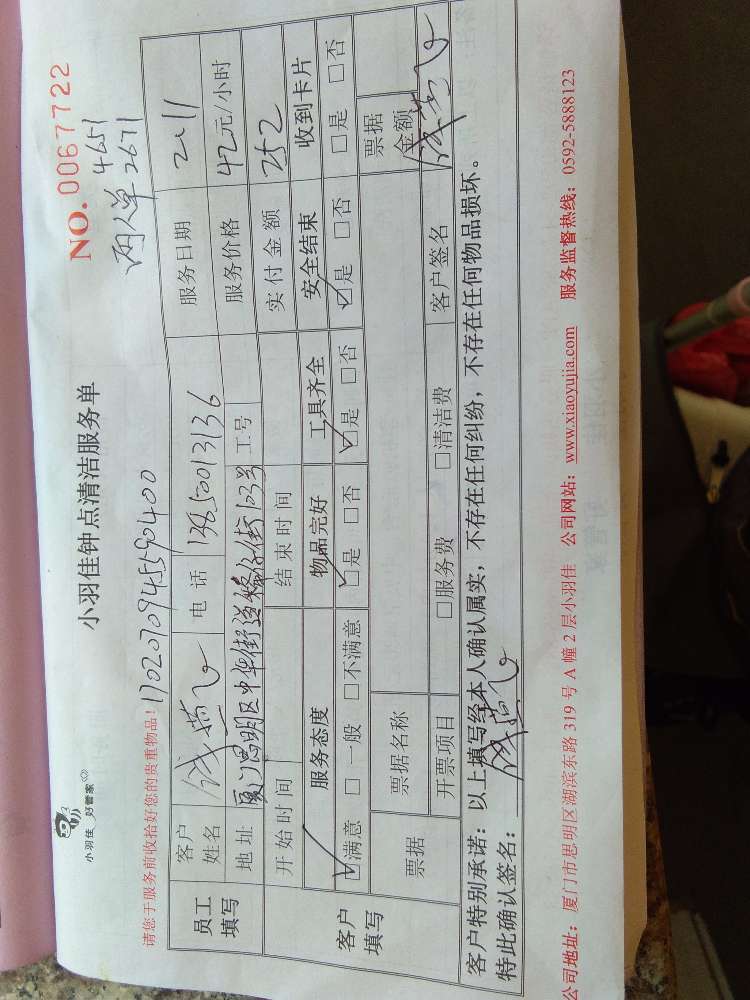 小羽佳 好管家
小羽佳钟点清洁服务单
NO. 0067722
请您于服务前收拾好您的贵重物品！
两人单 4651
2671
员工填写
客户姓名
电话 13850013136
服务日期 2.11
地址 厦门思明区中华街道 街123号
工号
服务价格 42元/小时
开始时间
结束时间
实付金额 252
客户填写
服务态度 物品完好 工具齐全 安全结束 收到卡片
☑满意 □一般 □不满意 ☑是 □否 ☑是 □否 ☑是 □否 □是 □否
票据
票据名称
票据金额
开票项目 □服务费 □清洁费 客户签名
客户特别承诺：以上填写经本人确认属实，不存在任何纠纷，不存在任何物品损坏。
特此确认签名：
公司地址：厦门市思明区湖滨东路 319 号 A 幢 2 层小羽佳 公司网站：www.xiaoyujia.com 服务监督热线：0592-5888123